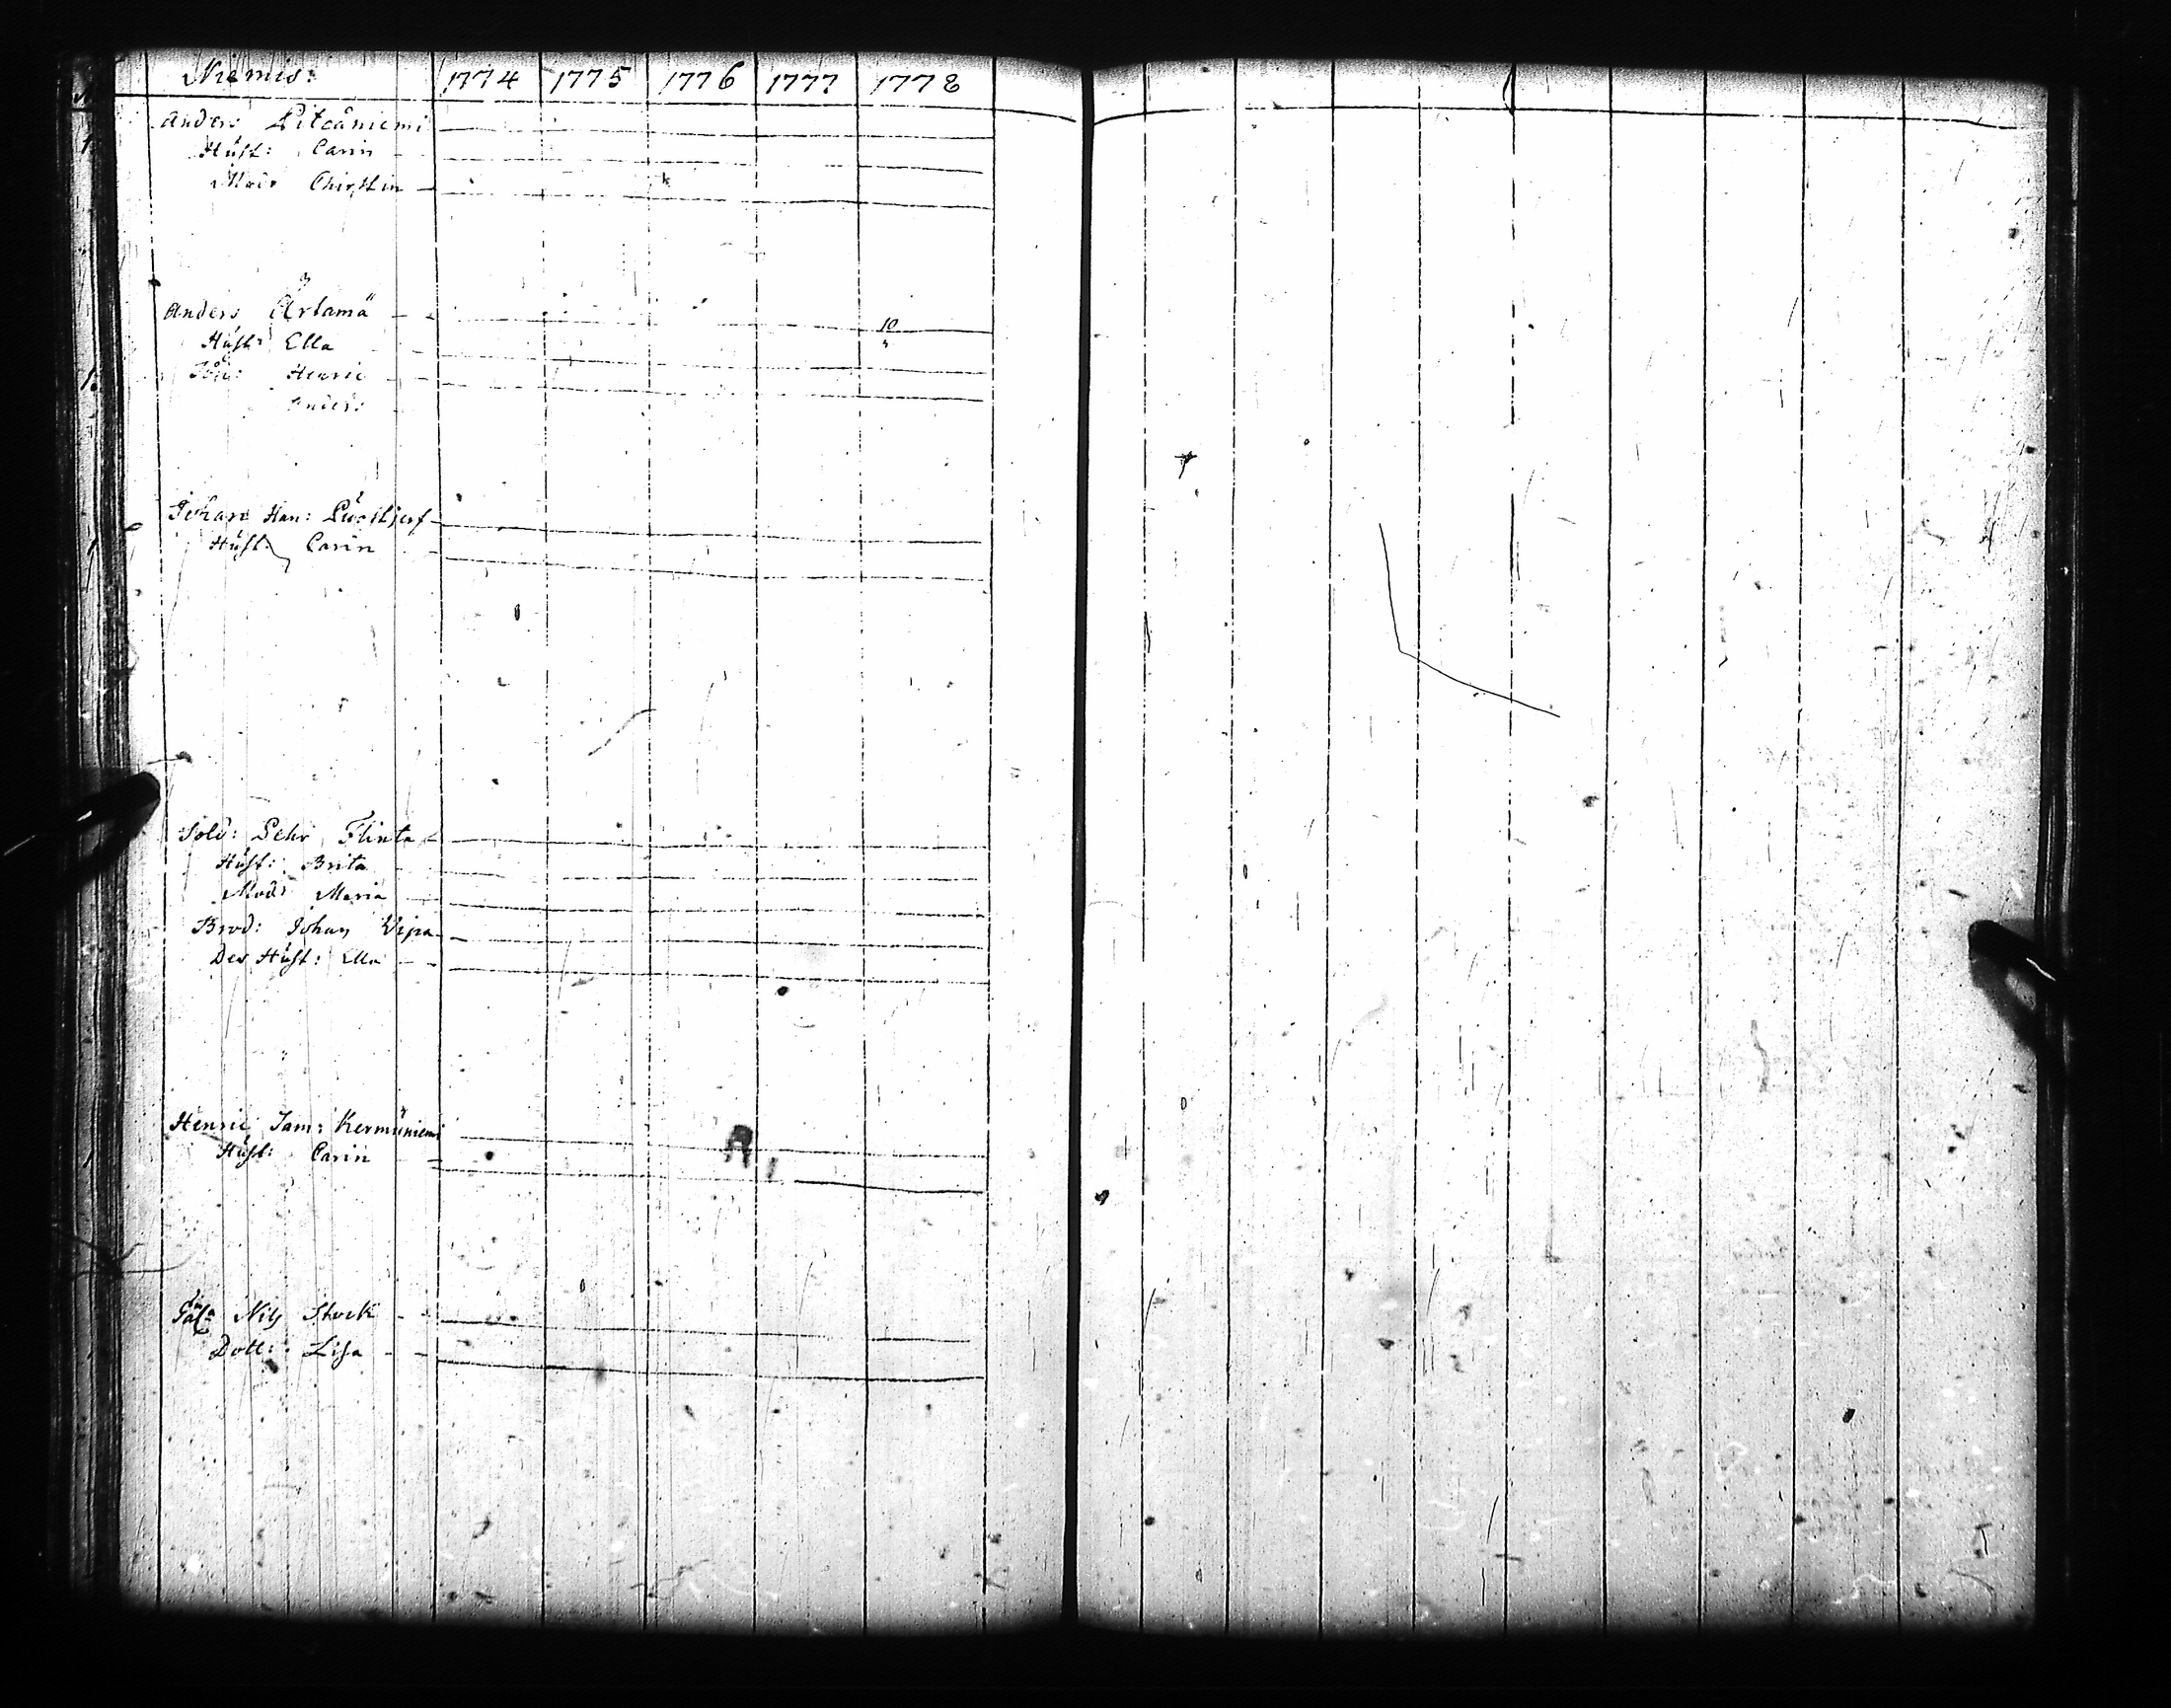 Niemis: 1774 1775 1776 1777 1778
Anders Piteåniemi
Hust: Carin
Chirstin
Anders Artamä 10
Hust: Ella
Henric
Anders
Johan Han:
Hust: Carin
Sold: Pehr Flinta
Hust: Brita
Mod: Maria
Brod: Johan Vipa
Des Hust: Ella
Henric Sam: Kermäniemi
Hust: Carin
Nils Stock
Dott: Lisa